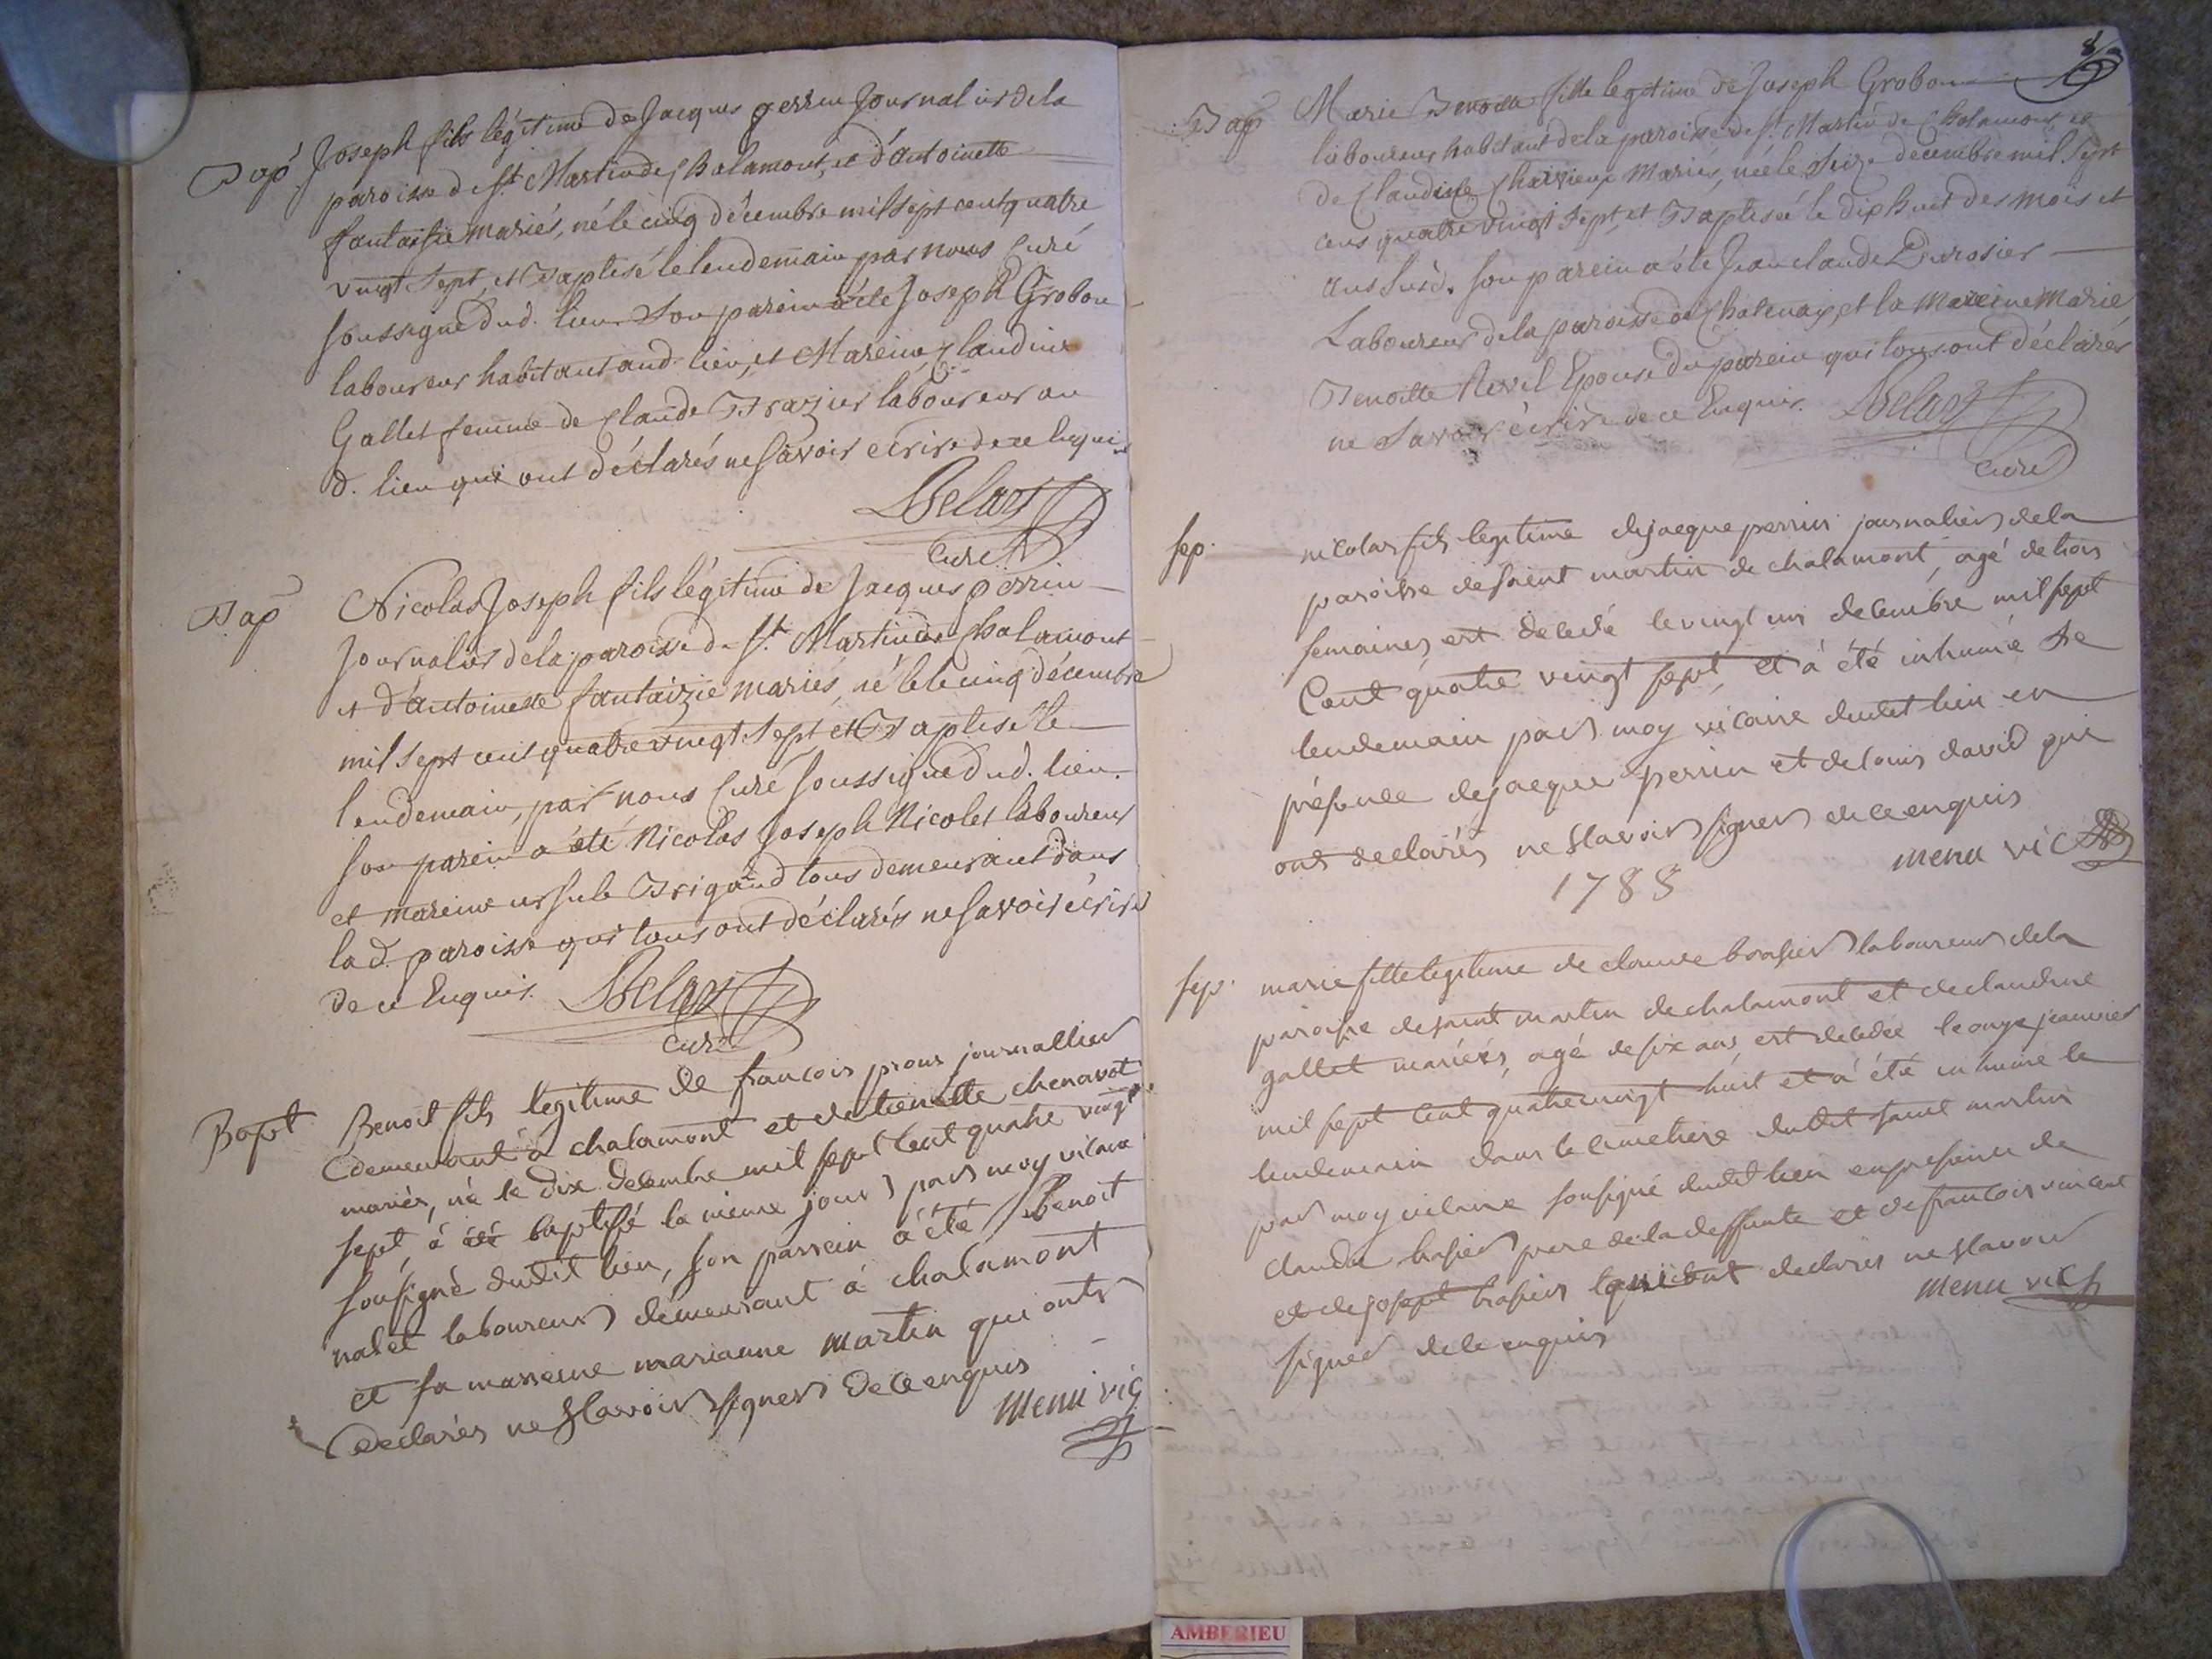 Bap Joseph fils légitime de Jacques perrin Journalier de la
paroisse de St Martin de Chalamont, et d'antoinette
fantaisie mariés, né le cinq décembre mil sept cent quatre
vingt sept, et Baptisé le lendemain par nous Curé
soussigné dud. lieu. Son parein a été Joseph Grobon
laboureur habitant aud. lieu, et Mareine Claudine
Gallet femme de Claude Brazier laboureur au
d. lieu qui ont déclarés ne savoir ecrire de ce Enquis
Curé
Bap Nicolas Joseph fils légitime de Jacques perrin
Journalier de la paroisse de St. Martin de Chalamont
et d'antoinette fantaizie mariés, né le cinq décembre
mil sept cent quatre vingt sept et Baptisé le
lendemain, par nous Curé soussigné dud. lieu.
son parein a été Nicolas Joseph Nicolet laboureur
et mareine ursule Brigand tous demeurant dans
lad. paroisse qui tous ont déclarés ne savoir écrire
de ce Enquis.
Curé
Bapt Benoit fils légitime de francois prous journallier
demeurant à chalamont et de chenavot
mariés, né le dix decembre mil sept cent quatre vingt
sept, à été baptisé le même jour par moy vicaire
sousigné dudit lieu, son parrein a été Benoit
nalet laboureur demeurant à chalamont
et sa marreine marianne martin qui ont
declarés ne sçavoir signer de ce enquis
menu vic
8
Bap Marie Benoitte fille legitime de Joseph Grobon
laboureur habitant de la paroisse de St. Martin de Chalamont et
de Claudine mariés, née le seize decembre mil sept
cens quatre vingt sept, et Baptisée le dix huit des mois et
ans susd. son parein a été Jean claude Durosier
Laboureur de la paroisse de Chatenay, et la Mareine Marie
Benoitte Revel Epouse du parein qui tous ont déclarés
ne Savoir écrire de ce Enquis.
Curé
sep. nicolas fils legitime de jacque perrin journalier de la
paroisse de saint martin de chalamont, agé de trois
semaines est decedé le vingt un decembre mil sept
Cent quatre vingt sept, et à été inhumé le
lendemain par moy vicaire dudit lieu en
présence de jacque perrin et de louis david qui
ont declarés ne sçavoir signer de ce enquis
menu vic
1788
sep. marie fille legitime de claude brasier laboureur de la
paroisse de saint martin de chalamont et de claudine
gallet mariés, agé de six ans est decedée le onze janvier
mil sept cent quatre vingt huit et a été inhumé le
lendemain dans le cimetiere dudit saint martin
par moy vicaire sousigné dudit lieu en presence de
claude brasier pere de la deffunte et de francois vincent
et de josept brasier qui ont declarés ne sçavoir
signer de ce enquis
menu vic
AMBERIEU